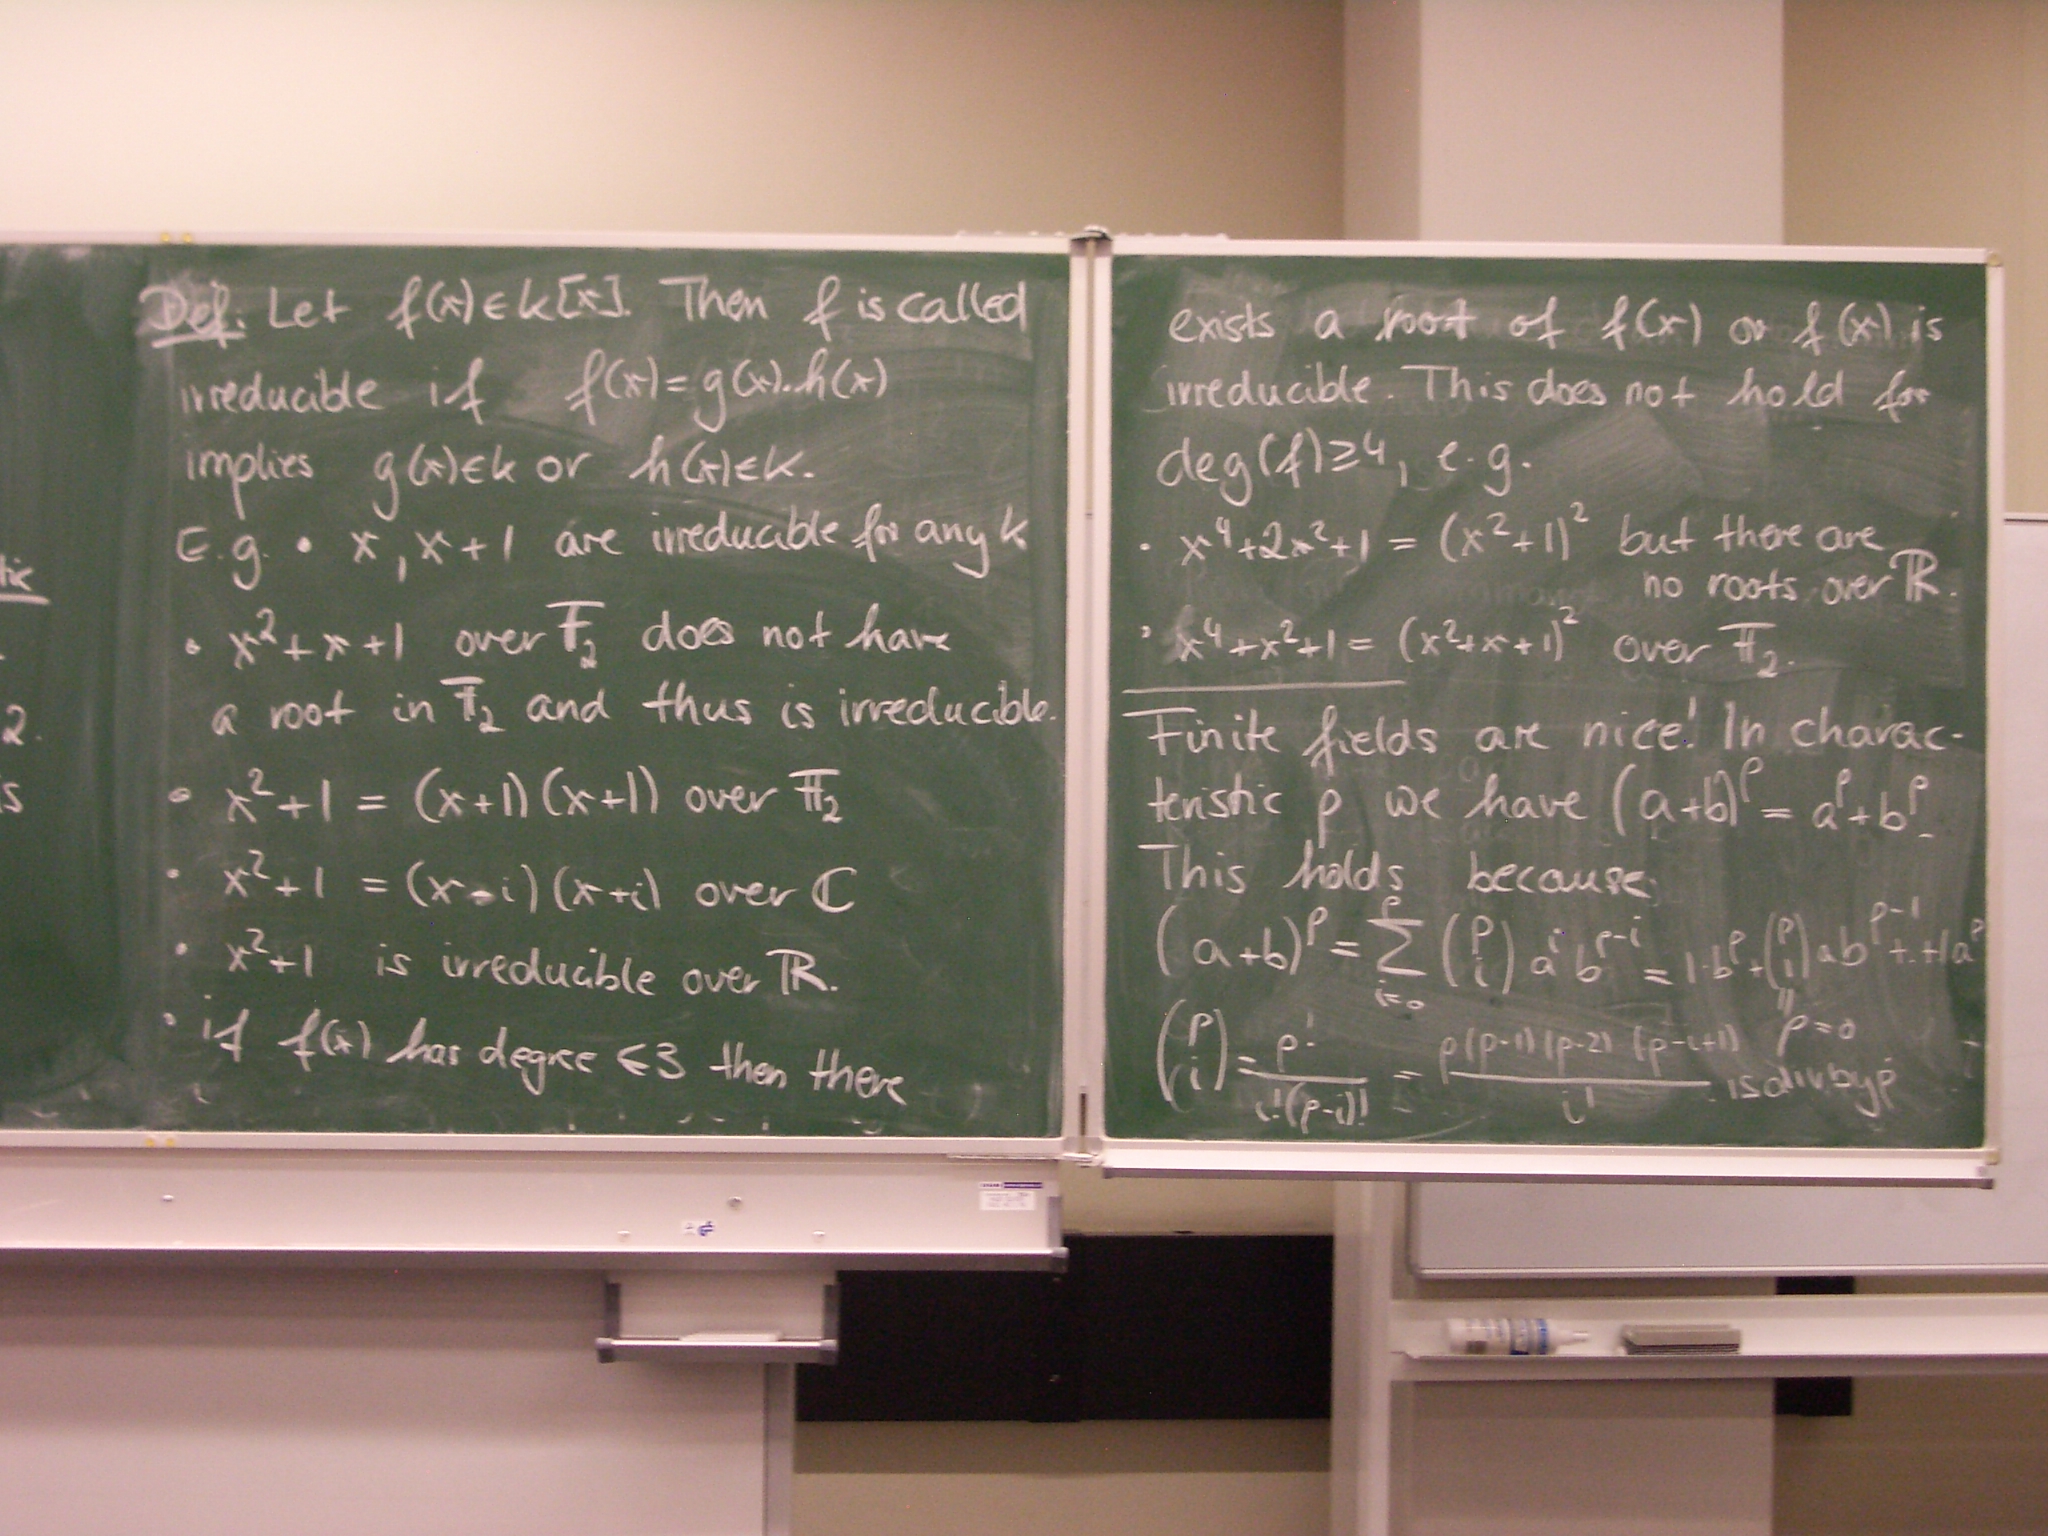 tic
2.
is
Def: Let f(x)∈k[x]. Then f is called
irreducible if f(x)=g(x).h(x)
implies g(x)∈k or h(x)∈k.
E.g. • x, x+1 are irreducible for any k
• x²+x+1 over 𝔽₂ does not have
a root in 𝔽₂ and thus is irreducible.
• x²+1 = (x+1)(x+1) over 𝔽₂
• x²+1 = (x-i)(x+i) over ℂ
• x²+1 is irreducible over ℝ.
• if f(x) has degree ≤3 then there
exists a root of f(x) or f(x) is
irreducible. This does not hold for
deg(f)≥4, e.g.
• x⁴+2x²+1 = (x²+1)² but there are
no roots over ℝ.
• x⁴+x²+1 = (x²+x+1)² over 𝔽₂.
Finite fields are nice! In charac-
teristic p we have (a+b)^p = a^p+b^p.
This holds because:
(a+b)^p = ∑_{i=0}^{p} (p i) a^i b^{p-i} = 1·b^p+(p 1)ab^{p-1}+..+1a^p
(p i) = p!/(i!(p-i)!) = p(p-1)(p-2) (p-i+1)/i! is div by p
" p=0